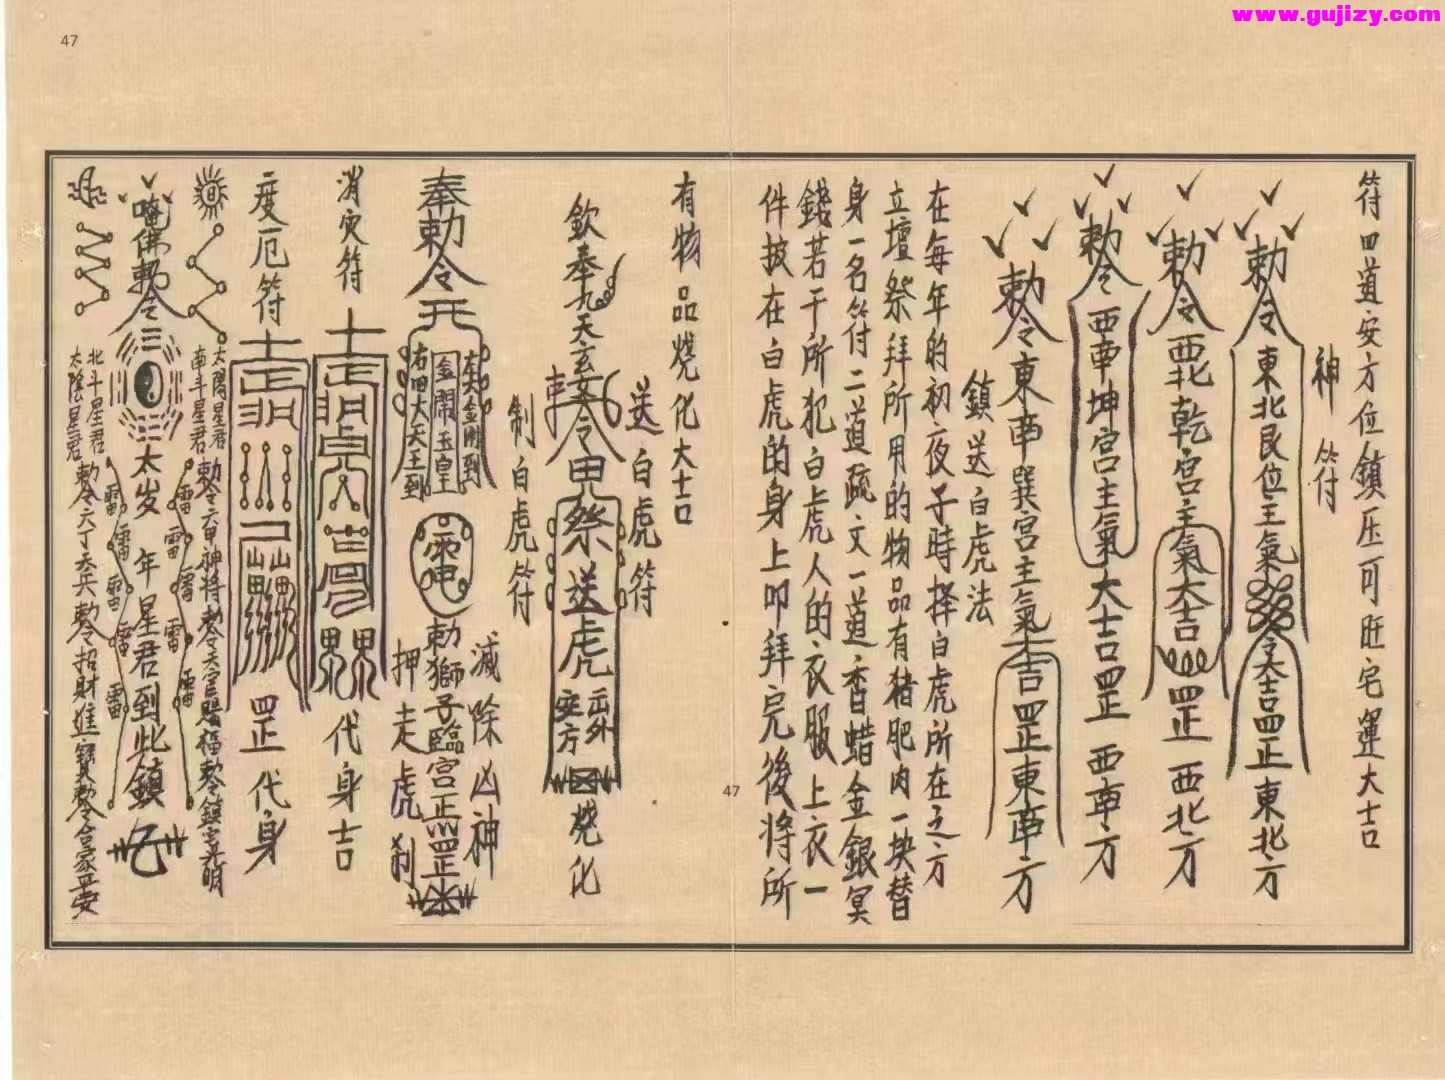 www.gujizy.com
47
符四道安方位鎮压可旺宅運大吉
神符
敕令東北艮位主氣 令大吉罡東北方
敕令西北乾宮主氣大吉罡西北方
敕令西南坤宮主氣大吉罡西南方
敕令東南巽宮主氣大吉罡東南方
鎮送白虎法
在每年的初夜子時择白虎所在之方
立壇祭拜所用的物品有猪肥肉一块替
身一名符二道疏文一道香蜡金銀冥
錢若干所犯白虎人的衣服上衣一
件披在白虎的身上叩拜完後將所
有物品燒化大吉
送白虎符
欽奉九天玄女令 祭送虎 出外 安方 燒化
制白虎符
奉敕令
左大金剛到
金闕玉皇
右四大天王到
敕獅子臨宮正罡
減除凶神
押走虎剎
消灾符
代身吉
二度厄符
罡代身
太陽星君
南斗星君
敕令六甲神將敕令天官賜福敕令鎮宅光明
唵佛敕令
太岁 年星君到此鎮
北斗星君
太陰星君
敕令六丁天兵敕令招財進寶敕令合家平安
雷 雷 雷 雷
47